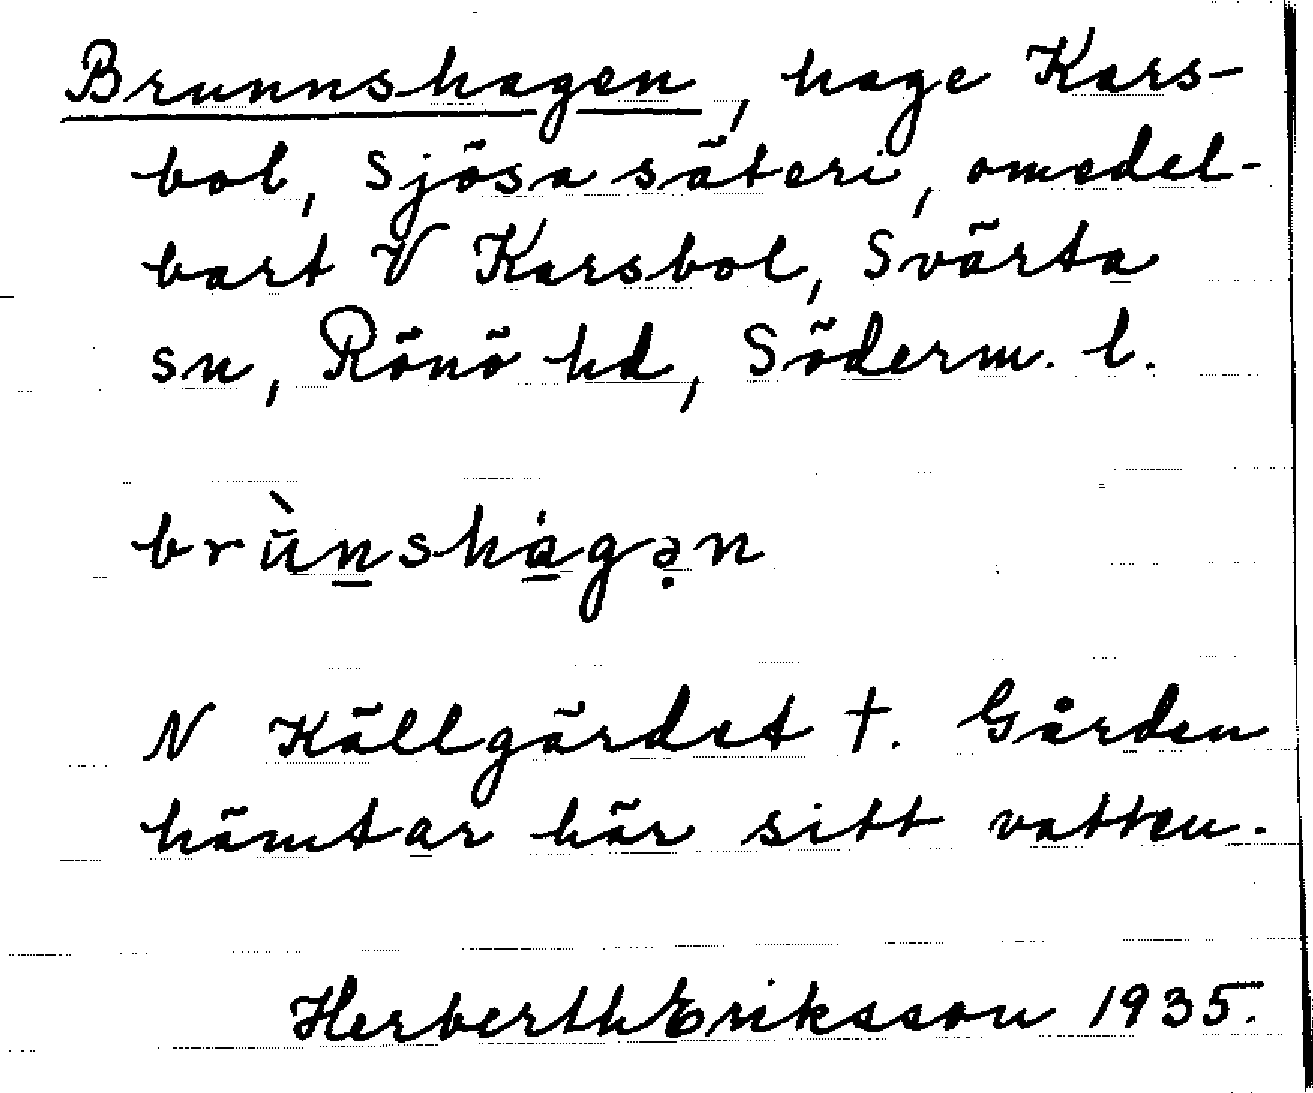 Brunnshagen, hage Kars-
bol, Sjösa säteri, omedel-
bart V Karsbol, Svärta
sn, Rönö hd, Söderm. l.
brùn̲shȧ̲gə̣n
N Källgärdet †. Gården
hämtar här sitt vatten.
Herberth Eriksson 1935.